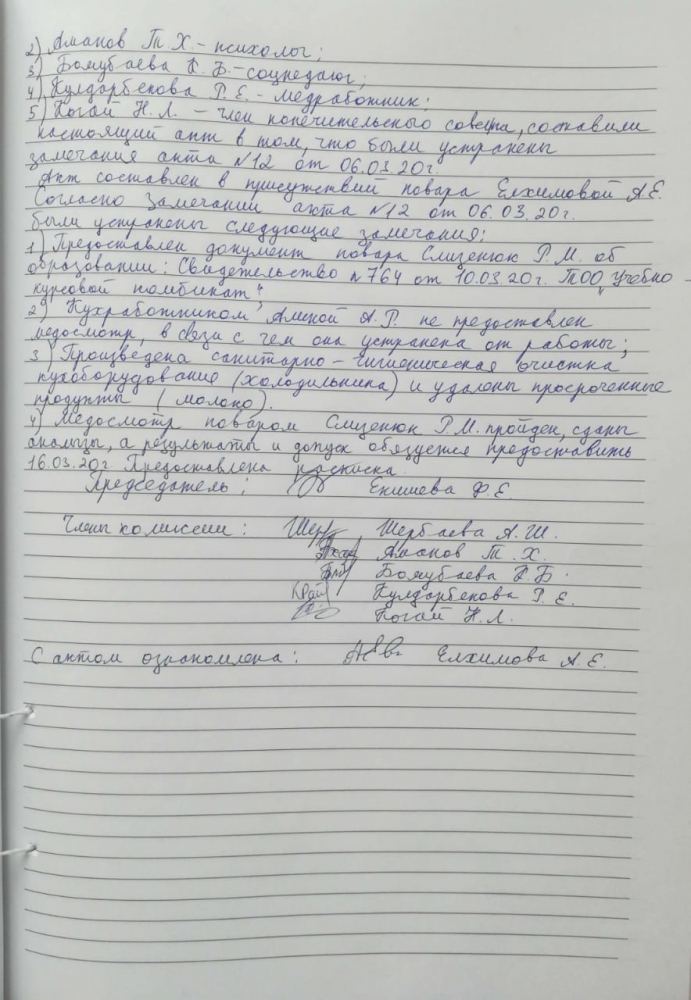 2) Аманов Т.Х. - психолог;
3) Божубаева К.Б. - соцпедагог;
4) Кулдарбекова Р.Е. - медработник;
5) Когай Н.Л. - член попечительского совета, составили
настоящий акт в том, что были устранены
замечания акта №12 от 06.03.20г.
Акт составлен в присутствий повара Елхимовой А.Е.
Согласно Замечании акта №12 от 06.03.20г.
были устранены следующие замечания:
1) Предоставлен документ повара Слизенюк Р.М. об
образовании: Свидетельство №764 от 10.03.20г. ТОО „Учебно-
курсовой комбикат“;
2) Кухработником Аминой А.Р. не предоставлен
медосмотр, в связи с чем она устранена от работы;
3) Произведена санитарно-гигиеническая очистка
кухоборудование (холодильника) и удалены просроченные
продукты (молоко).
4) Медосмотр поваром Слизенюк Р.М. пройден, сданы
анализы, а результаты и допуск обязуется предоставить
16.03.20г Предоставлена расписка.
Председатель: Екишева Ф.Е.
Члены комиссии: Шер Шербаева А.Ш.
Аманов Т.Х.
Божубаева К.Б.
Кулдарбекова Р.Е.
Когай Н.Л.
С актом ознакомлена: Елхимова А.Е.